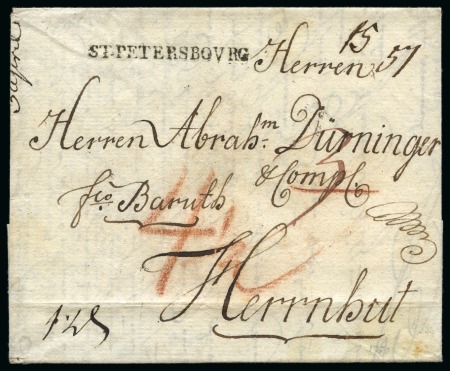 ST.PETERSBOVRG
15
Herren 57
Herren Abrah.m Dürninger
& Comp.
3
fco Baruth
4½
Herrnhut